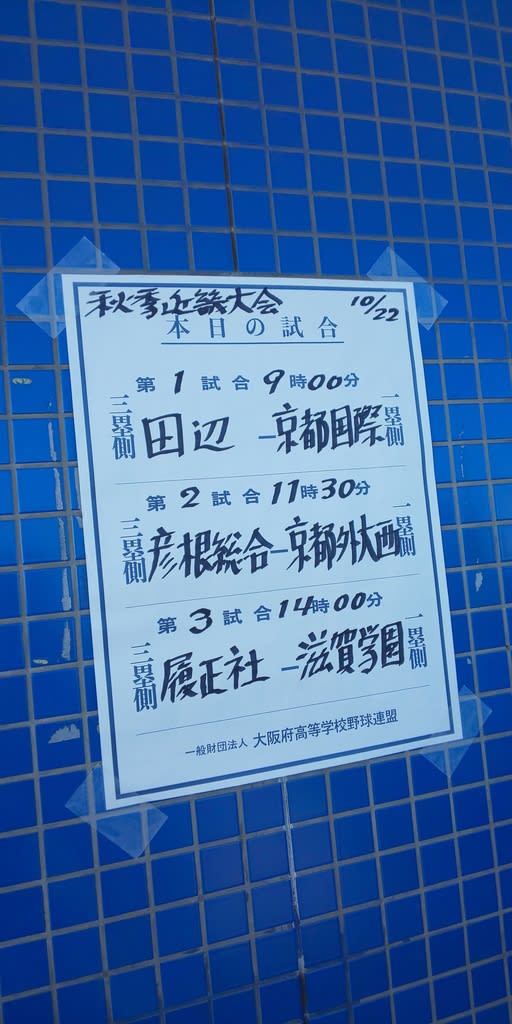 秋季近畿大会 10/22
本日の試合
第1試合 9時00分
三塁側 田辺 - 京都国際 一塁側
第2試合 11時30分
三塁側 彦根総合 - 京都外大西 一塁側
第3試合 14時00分
三塁側 履正社 - 滋賀学園 一塁側
一般財団法人 大阪府高等学校野球連盟